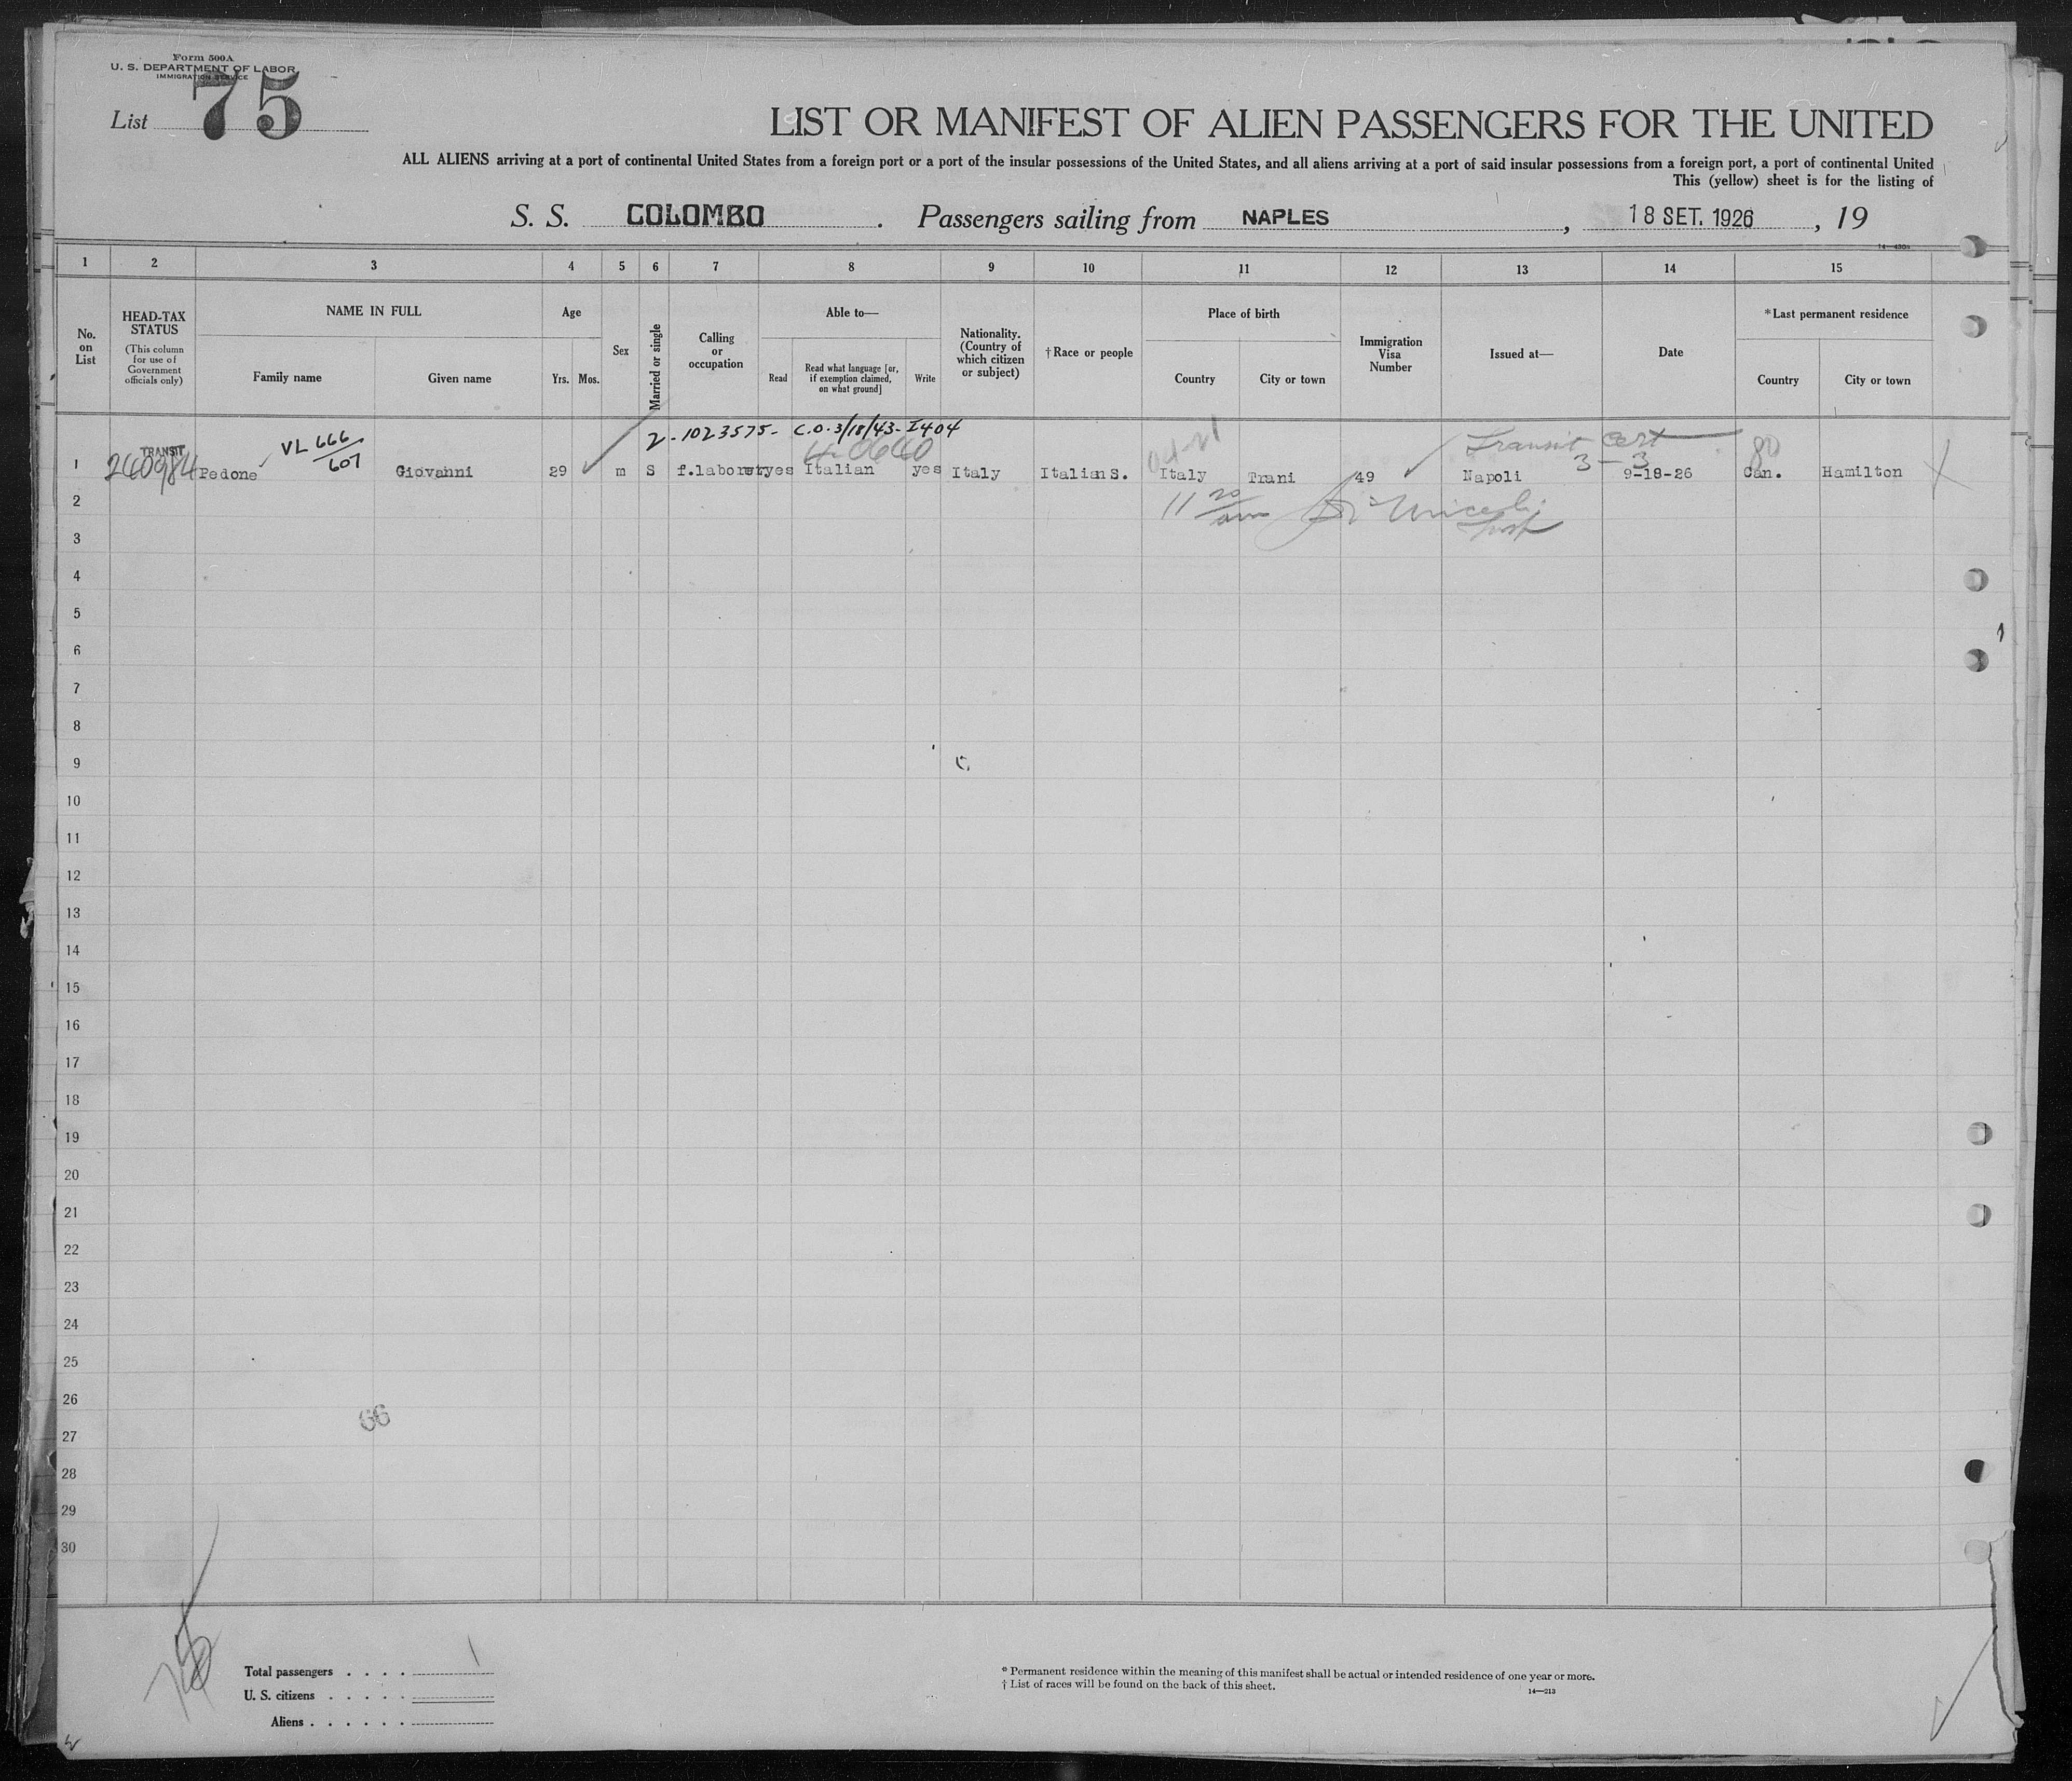 Form 500A
U. S. DEPARTMENT OF LABOR
IMMIGRATION SERVICE
List 75
LIST OR MANIFEST OF ALIEN PASSENGERS FOR THE UNITED
ALL ALIENS arriving at a port of continental United States from a foreign port or a port of the insular possessions of the United States, and all aliens arriving at a port of said insular possessions from a foreign port, a port of continental United
This (yellow) sheet is for the listing of
S. S. COLOMBO. Passengers sailing from NAPLES, 18 SET. 1926, 19
14—430a
1 2 3 4 5 6 7 8 9 10 11 12 13 14 15
No. on List
HEAD-TAX STATUS
(This column for use of Government officials only)
NAME IN FULL
Family name Given name
Age
Yrs. Mos.
Sex
Married or single
Calling or occupation
Able to—
Read Read what language [or, if exemption claimed, on what ground] Write
Nationality. (Country of which citizen or subject)
†Race or people
Place of birth
Country City or town
Immigration Visa Number
Issued at—
Date
*Last permanent residence
Country City or town
2-1023575- C.O. 3/18/43-I404
TRANSIT VL 666/607 Transit cert 80
3-3
1 240984 Pedone Giovanni 29 m S f.laborer yes Italian yes Italy Italian S. Italy Trani 49 Napoli 9-18-26 Can. Hamilton
2 11 20
3
4
5
6
7
8
9
10
11
12
13
14
15
16
17
18
19
20
21
22
23
24
25
26
66
27
28
29
30
Total passengers . . . . 1
U. S. citizens . . . . .
Aliens . . . . . .
* Permanent residence within the meaning of this manifest shall be actual or intended residence of one year or more.
† List of races will be found on the back of this sheet.
14—213